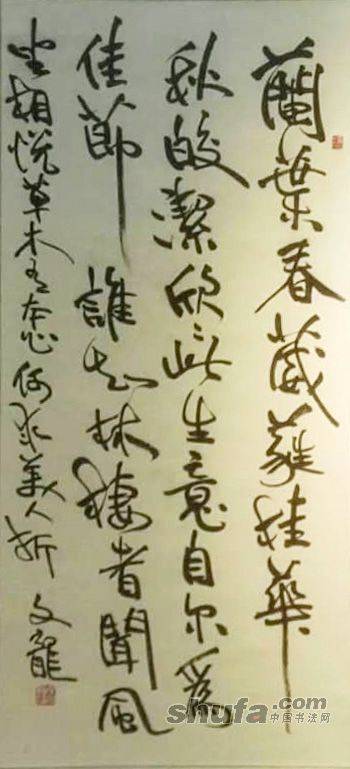 蘭葉春葳蕤桂華
秋皎潔欣此生意自尔爲
佳節 誰知林棲者聞風
坐相悅草木有本心何求美人折 文龍
shufa.com
中国书法网